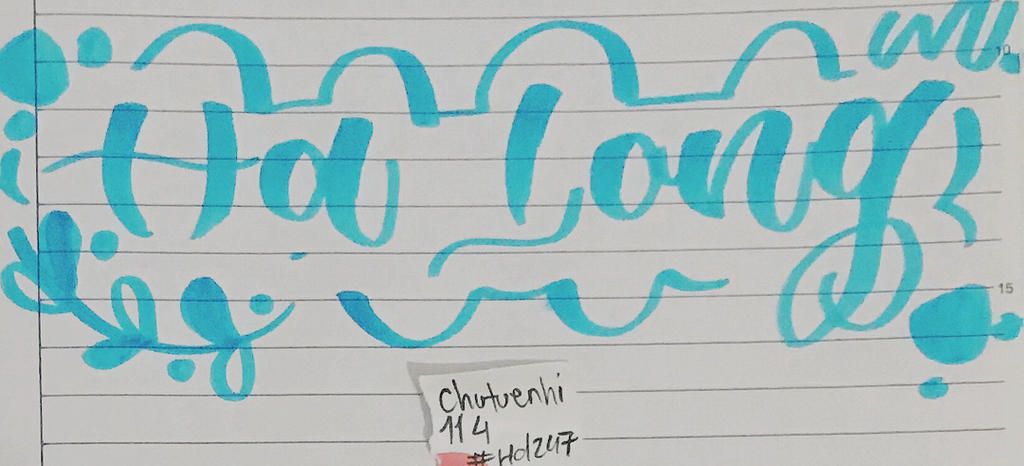 10
Ha Long
15
chutuenhi
114
#Hd247